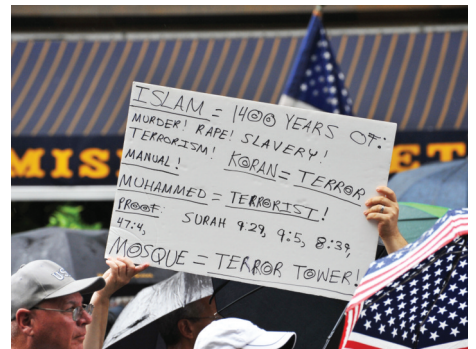 ISLAM = 1400 YEARS OF:
MURDER! RAPE! SLAVERY!
TERRORISM! KORAN = TERROR
MANUAL!
MUHAMMED = TERRORIST!
PROOF: SURAH 9:29, 9:5, 8:39,
47:4,
MOSQUE = TERROR TOWER!
MIS ET
US